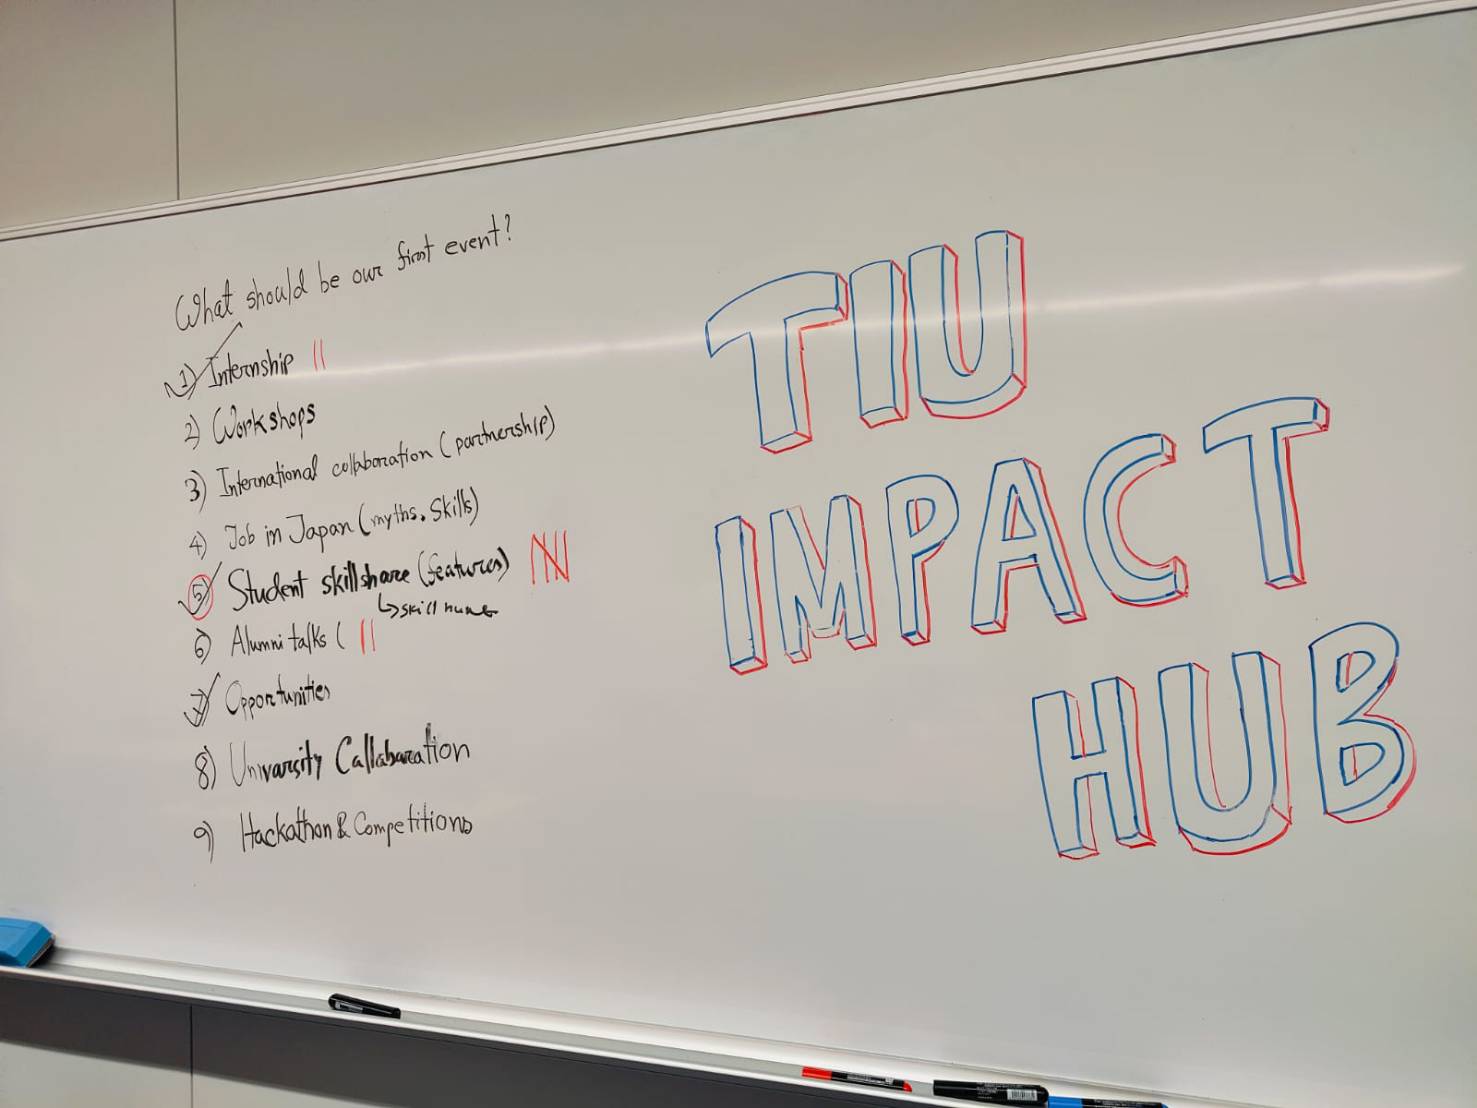 What should be our first event?
1) Internship ||
2) Workshops
3) International collaboration (partnership)
4) Job in Japan (myths, skills)
5) Student skillshare (features)
↳ skill
6) Alumni talks ( ||
7) Opportunities
8) Univarsity Callabaration
9) Hackathon & Competitions
TIU
IMPACT
HUB